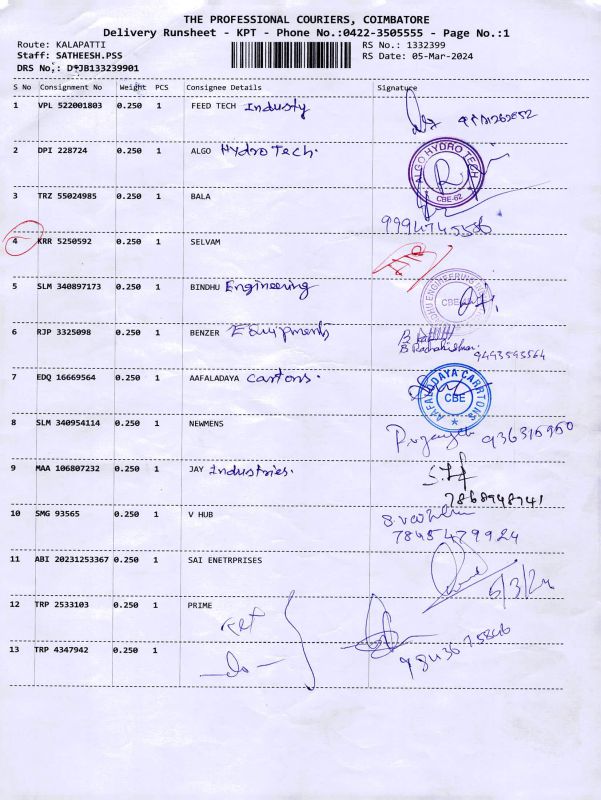 THE PROFESSIONAL COURIERS, COIMBATORE
Delivery Runsheet - KPT - Phone No.:0422-3505555 - Page No.:1
Route: KALAPATTI RS No.: 1332399
Staff: SATHEESH.PSS RS Date: 05-Mar-2024
DRS No.: D1JB133239901
S No Consignment No Weight PCS Consignee Details Signature
1 VPL 522001803 0.250 1 FEED TECH Industy
2 DPI 228724 0.250 1 ALGO Hydro Tech.
ALGO HYDRO TECH
CBE-62
3 TRZ 55024985 0.250 1 BALA
4 KRR 5250592 0.250 1 SELVAM
5 SLM 340897173 0.250 1 BINDHU Engineering
CBE
6 RJP 3325098 0.250 1 BENZER Equipments
9443593564
7 EDQ 16669564 0.250 1 AAFALADAYA cartons.
AAFALADAYA CARRTONS
CBE
8 SLM 340954114 0.250 1 NEWMENS
936315950
9 MAA 106807232 0.250 1 JAY Industries.
7868948741
10 SMG 93565 0.250 1 V HUB
7845479924
11 ABI 20231253367 0.250 1 SAI ENETRPRISES
5/3/24
12 TRP 2533103 0.250 1 PRIME
13 TRP 4347942 0.250 1
9843675846